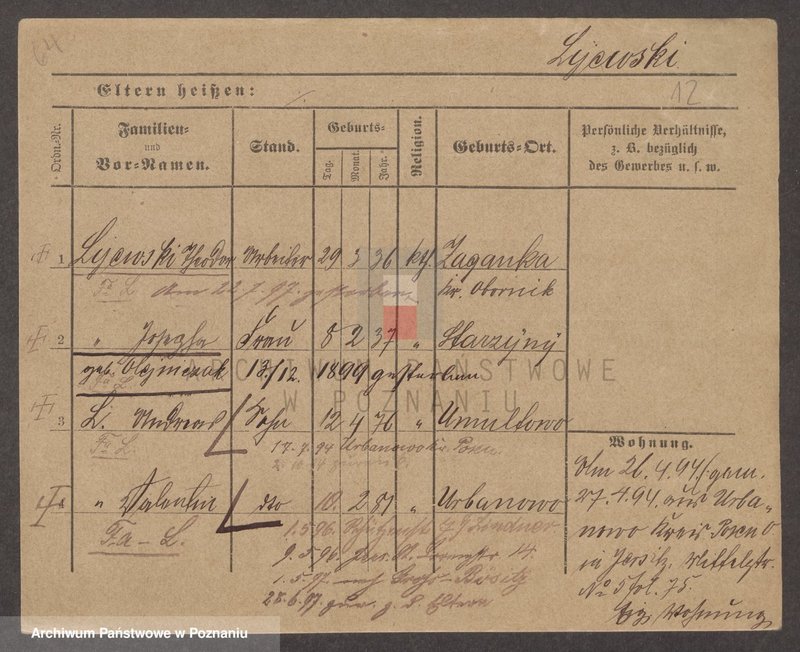 64
Lijewski
12
Eltern heißen:
Ordn.-Nr.
Familien-
und
Vor-Namen.
Stand.
Geburts-
Tag.
Monat.
Jahr.
Religion.
Geburts-Ort.
Persönliche Verhältnisse,
z. B. bezüglich
des Gewerbes u. s. w.
1 Lijewski Theodor Arbeiter 29 3 36 kth. Zaganka
Fa L Am 22.7.97. gestorben Kr. Obornik
2 " Josepha Frau 8 2 37 " Starzijny
geb. Olejniczak 13/12. 1899 gestorben
Fa L
ARCHIWUM PAŃSTWOWE
W POZNANIU
3 L. Andreas Sohn 12 4 76 " Umultowo
Fa L 17.7.94 Urbanowo Kr. Posen.
4 " Valentin dto 10. 2 81 " Urbanowo
Fa - L. 1.5.96. Lindner
9.5.96. 14
1.5.97. nach
25.6.97 zur. z. d. Eltern
Wohnung.
Am 26.4.94. gem.
27.4.94. aus Urba-
nowo Kreis Posen O.
in Jersitz,
No 5 fol. 75.
Eig. Wohnung
Archiwum Państwowe w Poznaniu